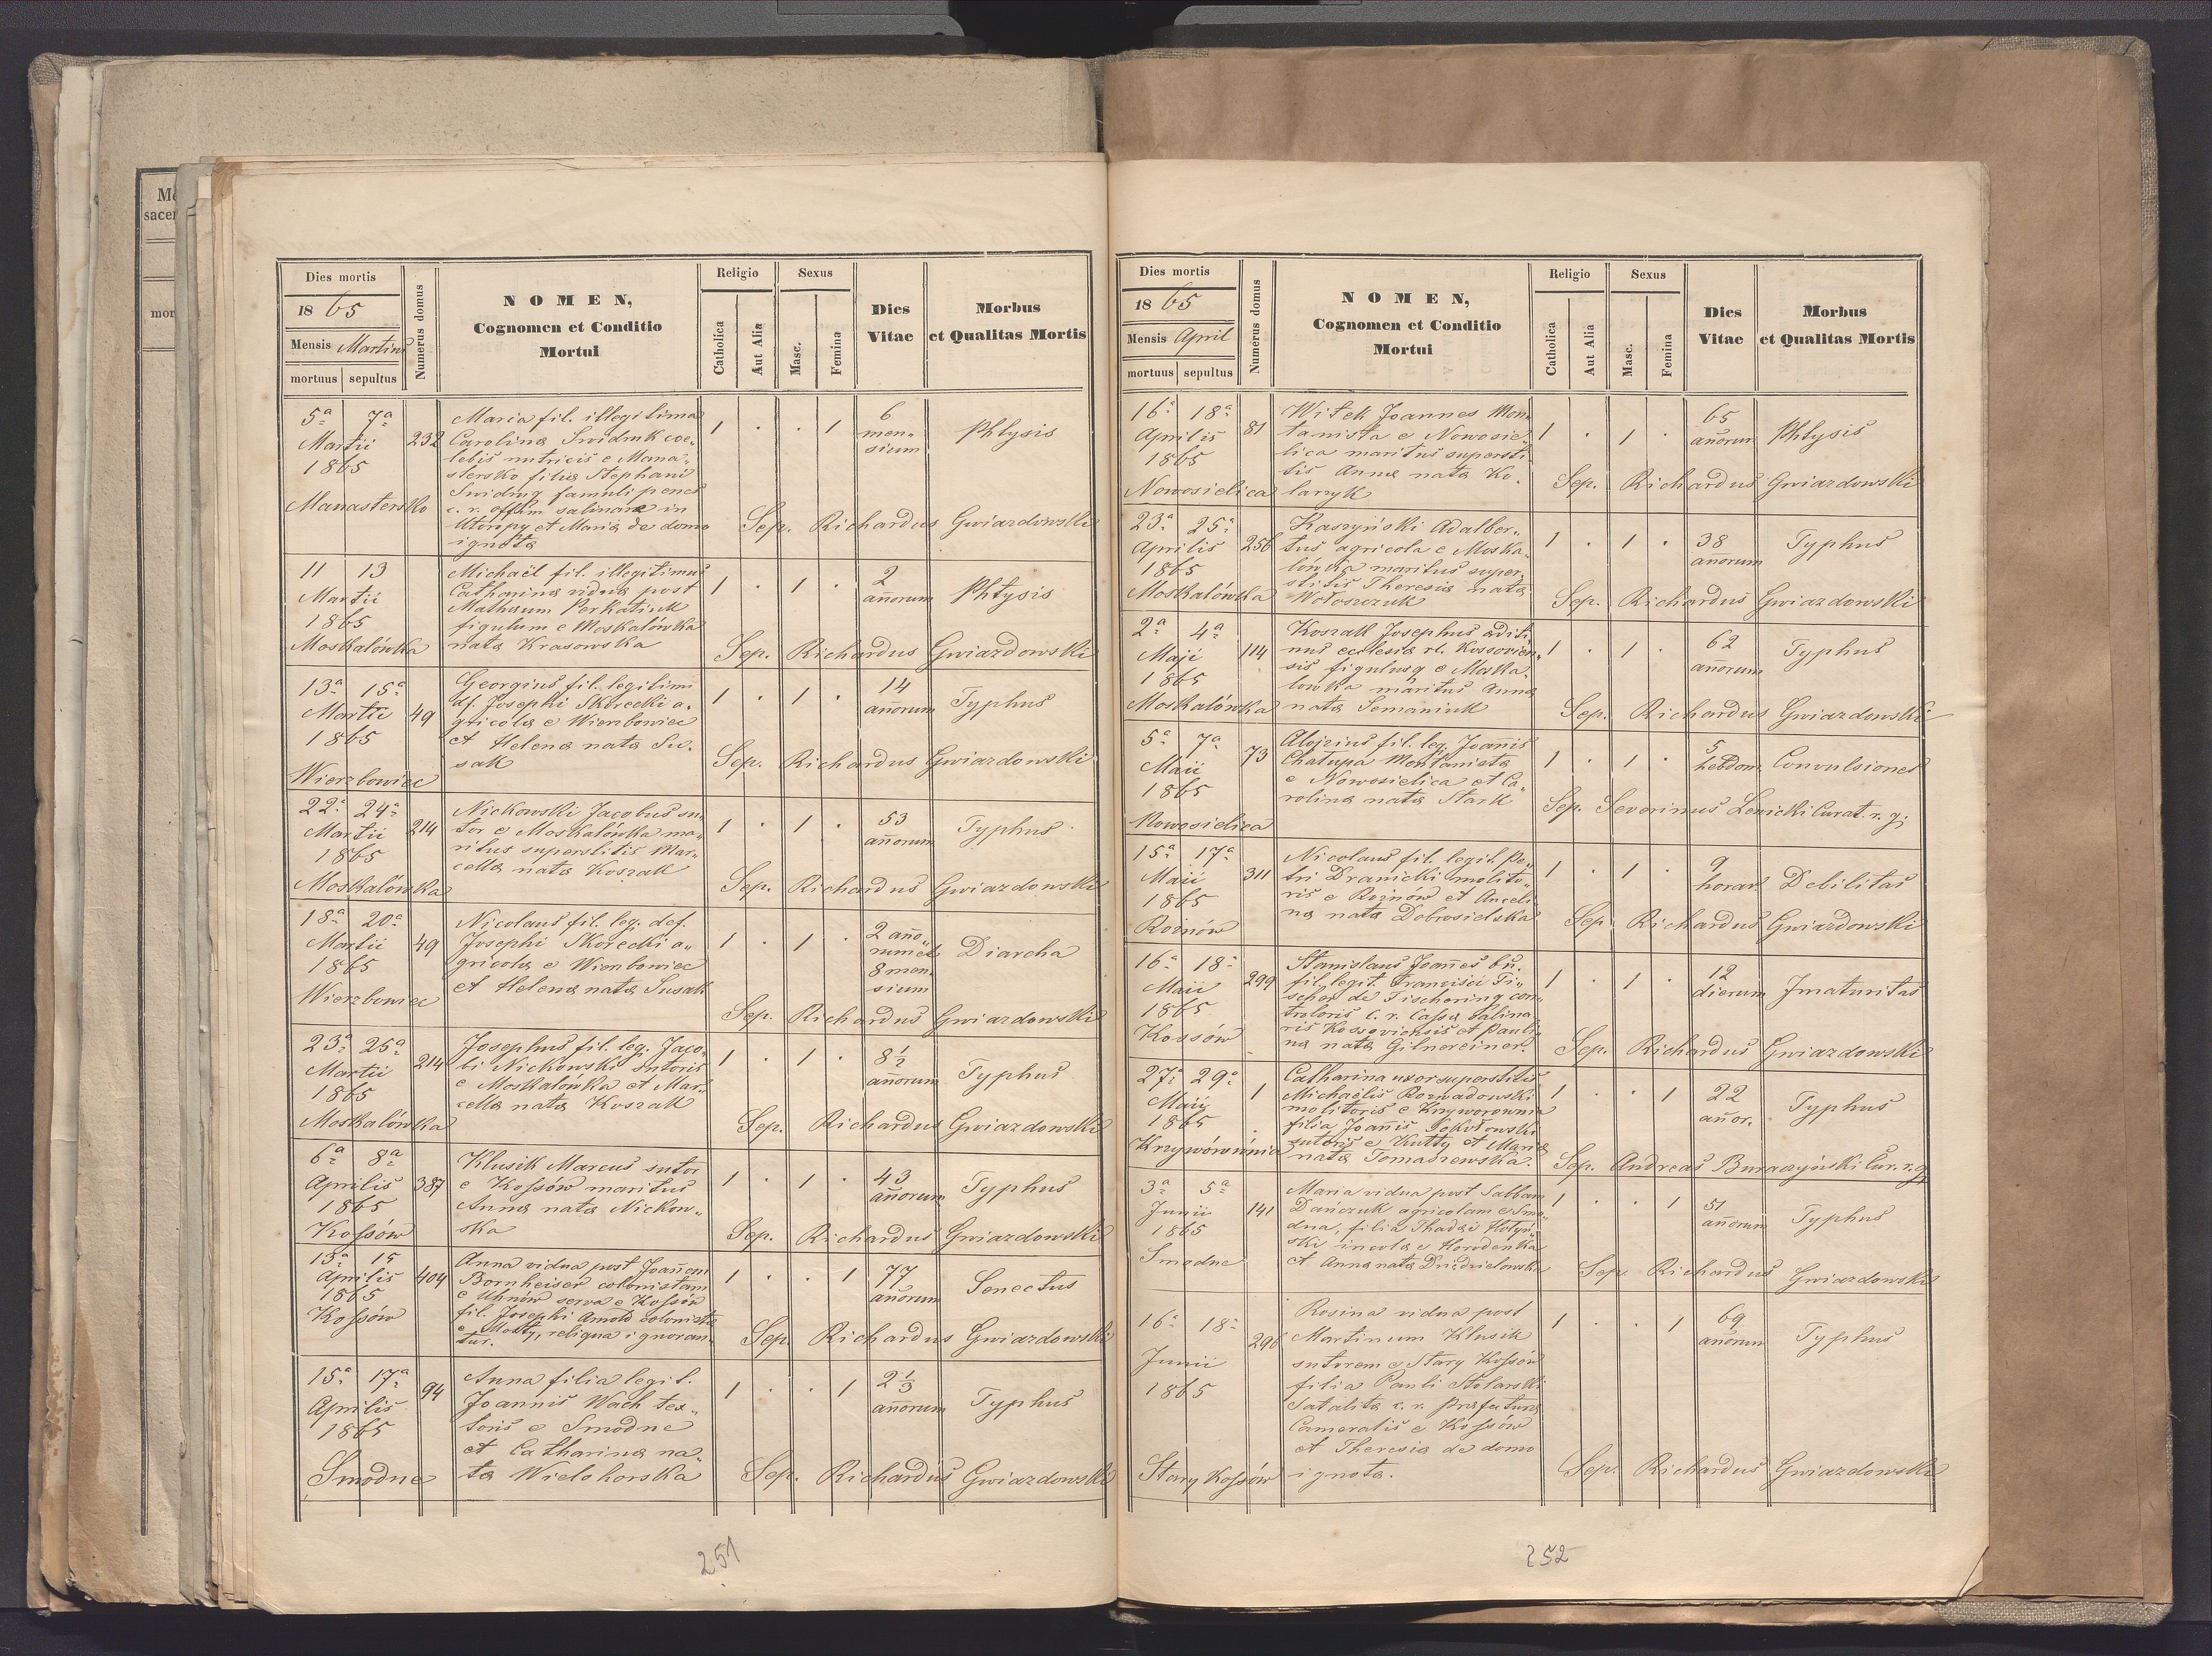 Me
sacer
mor
Dies mortis
1865
Mensis Martius
mortuus sepultus
Numerus domus
NOMEN,
Cognomen et Conditio
Mortui
Religio
Catholica
Aut Alia
Sexus
Masc.
Femina
Dies
Vitae
Morbus
et Qualitas Mortis
5a 7a
Martii
1865
Manastersko
232
Maria fil. illegitima
Carolina Swidruk coe„
lebis nutricis e Mana„
stersko filia Stephani
famuli penes
c. r. offim salinare in
Utoropy et Maria de domo
ignota
1 . . 1
6
men„
sium
Phtysis
Sep. Richardus Gwiazdowski
11 13
Martii
1865
Moskalówka
Michaël fil. illegitimus
Catharina vidua post
Mathaum Perkatiuk
figulum e Moskalówka
nata Krasowska
1 . 1 .
2
añorum
Phtysis
Sep. Richardus Gwiazdowski
13a 15a
Martii
1865
Wierzbowiec
49
Georgius fil. legitimi
df. Josephi Skorecki a„
gricola e Wierzbowiec
et Helena nata Su„
sak
1 . 1 .
14
añorum
Typhus
Sep. Richardus Gwiazdowski
22a 24a
Martii
1865
Moskalówka
214
Nickowski Jacobus su„
tor e Moskalówka ma„
ritus superstitis Mar„
cella nata Koszak
1 . 1 .
53
añorum
Typhus
Sep. Richardus Gwiazdowski
18a 20a
Martii
1865
Wierzbowiec
49
Nicolaus fil. leg. def.
Josephi Skorecki a„
gricola e Wierzbowiec
et Helena nata Susak
1 . 1 .
2 año„
rum et
8 men
sium
Diarcha
Sep. Richardus Gwiazdowski
23a 25a
Martii
1865
Moskalówka
214
Josephus fil. leg. Jaco„
bi Nickowski sutoris
e Moskalówka et Mar„
cella nata Koszak
1 . 1 .
8 1/2
añorum
Typhus
Sep. Richardus Gwiazdowski
6a 8a
Aprilis
1865
Kossów
387
Klusik Marcus sutor
e Kossów maritus
Anna nata Nickow„
ska
1 . 1 .
43
añorum
Typhus
Sep. Richardus Gwiazdowski
13a 15
Aprilis
1865
Kossów
404
Anna vidua post Joañem
Bornheiser colonistam
e Uhnów serva e Kossów
fil. Josephi Arnold colonista
e Mosty, reliqua ignoran„
tur.
1 . . 1
77
añorum
Senectus
Sep. Richardus Gwiazdowski
15a 17a
Aprilis
1865
Smodne
94
Anna filia legit.
Joannis Wach tex„
toris e Smodne
et Catharina na„
ta Wielohorska
1 . . 1
2 1/3
añorum
Typhus
Sep. Richardus Gwiazdowski
251
Dies mortis
1865
Mensis April
mortuus sepultus
Numerus domus
NOMEN,
Cognomen et Conditio
Mortui
Religio
Catholica
Aut Alia
Sexus
Masc.
Femina
Dies
Vitae
Morbus
et Qualitas Mortis
16a 18a
Aprilis
1865
Nowosielica
81
Witek Joannes Mon„
tanista e Nowosie„
lica maritus supersti„
tis Anna nata Ko„
laryk
1 . 1 .
65
añorum
Phtysis
Sep. Richardus Gwiazdowski
23a 25a
Aprilis
1865
Moskalówka
256
Kaszyński Adalber„
tus agricola e Moska„
lówka maritus super„
stitis Theresia nata
Wołoszczuk
1 . 1 .
38
añorum
Typhus
Sep. Richardus Gwiazdowski
2a 4a
Maji
1865
Moskalówka
114
Koszak Josephus aditi„
nus ecclesia rl. Kossovien„
sis figulusq e Moska„
lowka maritus Anna
nata Semaniuk
1 . 1 .
62
añorum
Typhus
Sep. Richardus Gwiazdowski
5a 7a
Maii
1865
Nowosielica
73
Alojzius fil. leg. Joañis
Chałupa Montanista
e Nowosielica et Ca„
rolina nata Stark
1 . 1 .
5
hebdom.
Convulsiones
Sep. Severinus Lewicki Curat. r. g.
15a 17a
Maii
1865
Rożnów
311
Nicolaus fil. legit. Pe„
tri Dranicki molito„
ris e Rożnów et Anceli„
na nata Dobrosielska
1 . 1 .
9
horar.
Debilitas
Sep. Richardus Gwiazdowski
16a 18a
Maii
1865
Kossów
299
Stanislaus Joañes bñ.
fil. legit. Francisci Fi„
scher de Fischering con„
troloris c. r. Cassa Salina„
ris Kossoviensis et Pauli„
na nata Gilnereiner.
1 . 1 .
12
dierum
Jmaturitas
Sep. Richardus Gwiazdowski
27a 29a
Maii
1865
Krzyworównia
1
Catharina uxor superstitis
Michaëlis Rozwadowski
molitoris e Krzyworownia
filia Joañis Sokołowski
sutoris e Kutty et Maria
nata Tomaszewska.
1 . . 1
22
añor.
Typhus
Sep. Andreas Buraczyński Cur. r. g.
3a 5a
Junii
1865
Smodne
141
Maria vidua post Sabbam
Dańczuk agricolam e Smo„
dna, filia Thadæi Hołyń„
ski incola e Horodenka
et Anna nata Dzidzielowska
1 . . 1
51
añorum
Typhus
Sep. Richardus Gwiazdowski
16a 18a
Junii
1865
Stary Kossów
296
Rosina vidua post
Martinum Klusik
sutorem e Stary Kossów
filia Pauli Stolarski
Satalita c. r. Præfectura
Cameralis e Kossów
et Theresia de domo
ignota.
1 . . 1
69
añorum
Typhus
Sep. Richardus Gwiazdowski
252